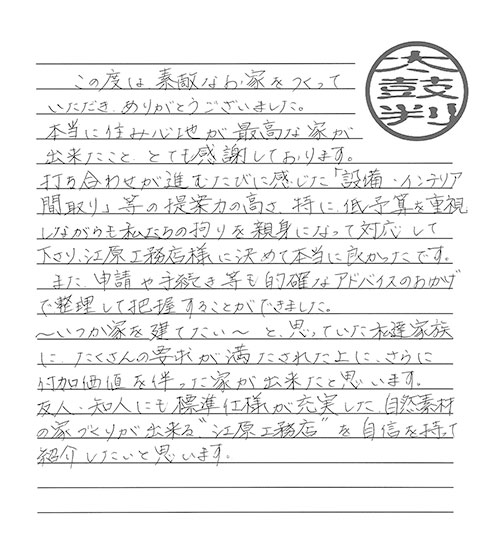 太鼓判
この度は、素敵なお家をつくって
いただき、ありがとうございました。
本当に住み心地が最高な家が
出来たこと、とても感謝しております。
打ち合わせが進むたびに感じた「設備・インテリア
間取り」等の提案力の高さ、特に、低予算を重視
しながらも私たちの拘りを親身になって対応して
下さり、江原工務店様に決めて本当に良かったです。
また、申請や手続き等も的確なアドバイスのおかげ
で整理して把握することができました。
〜いつか家を建てたい〜 と、思っていた私達家族
に、たくさんの要求が満たされた上に、さらに
付加価値を伴った家が出来たと思います。
友人・知人にも標準仕様が充実した、自然素材
の家づくりが出来る“江原工務店”を自信を持って
紹介したいと思います。